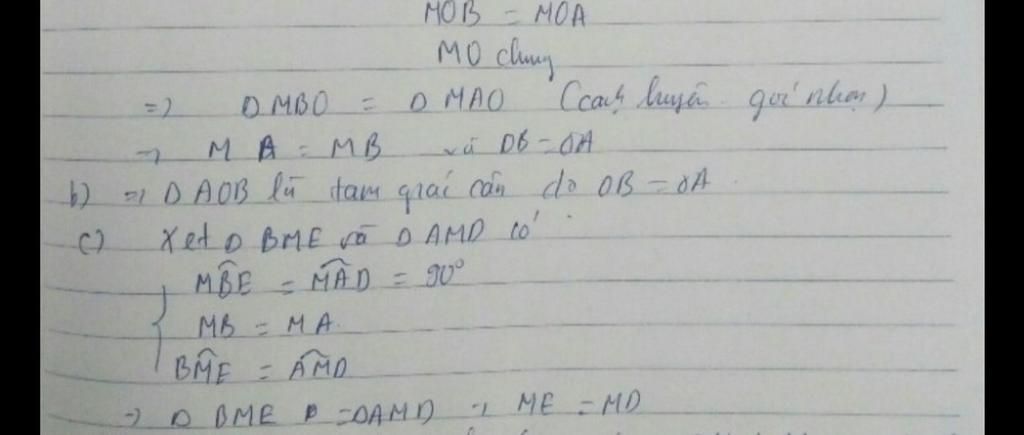 MOB = MOA
MO chung
=> Δ MBO = Δ MAO (cạnh huyền góc nhọn)
→ MA = MB và OB = OA
b) => Δ AOB là tam giác cân do OB = OA.
c) Xét Δ BME và Δ AMD có
MB̂E = MÂD = 90°
MB = MA.
BM̂E = AM̂D
→ Δ BME = ΔAMD → ME = MD